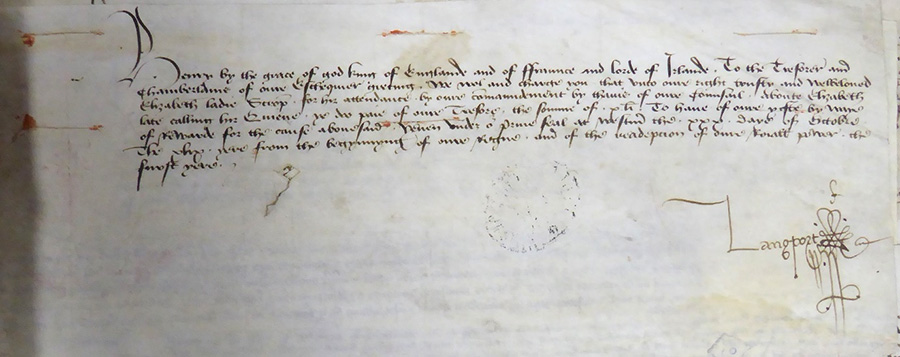 Henry by the grace of god king of England and of ffraunce and lord of Irlande . To the Tresorer and
Chamberlains of oure Eschequer greting . We wol and charge you that unto oure right trusty and welbeloved
Elizabeth ladie Scrop for hir attendance by oure comaundement by thavis of oure Counsail / aboute Elizabeth
late calling hir Quiene ye do paie of oure Tresory the somme of x li . To have of oure yefte by wey
of Reward for the cause abovesaid . Yeven under o prive seal at Westm the xxx day of Octobre
The xlix yere from the begynnyng of oure Regne . and of the readepcion of oure Roiall power . the
furst yere .
Langport